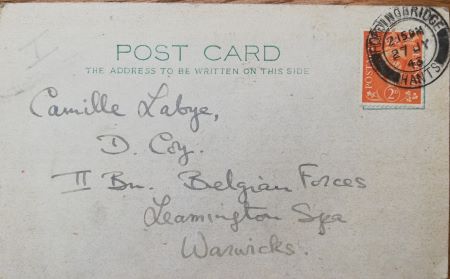 POST CARD
THE ADDRESS TO BE WRITTEN ON THIS SIDE
FORDINGBRIDGE
2.15 PM
27 JY
43
HANTS
POSTAGE
2D
Camille Labye,
D. Coy.
II Bn. Belgian Forces
Leamington Spa
Warwicks.